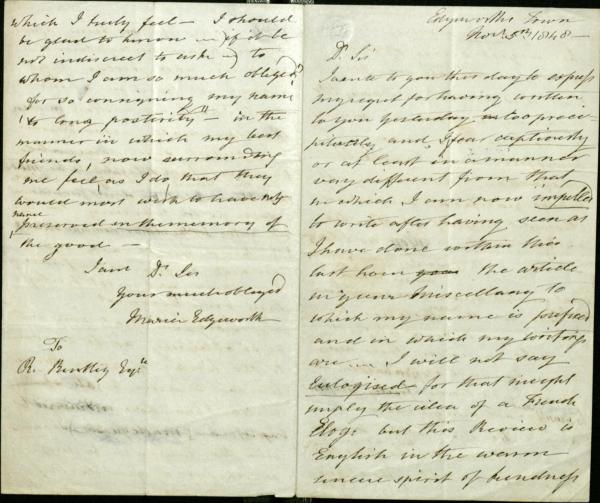 Edgeworths Town
Nov.r 5th 1848 —
Dr Sir
I wrote to you this day to express
my regret for having written
to you yesterday too preci-
pitately and I fear captiously
or at least in a manner
very different from that
in which I am now impelled
to write after having seen as
I have done within this
last hour the article
in your Miscellany to
which my name is prefixed
and in which my writings
are — I will not say
Eulogised for that might
imply the idea of a French
Eloge but this Review is
English in the warm
sincere spirit of kindness
which I truly feel — I should
be glad to know — (if it be
not indiscreet to ask —) to
whom I am so much obliged
for so consigning my name
"to long posterity" — in the
manner in which my best
friends, now surrounding
me feel, as I do that they
would most wish to have my
name
preserved in the memory of
the good —
I am Dr Sir
Your much obliged
Maria Edgeworth
To
R. Bentley Esqre